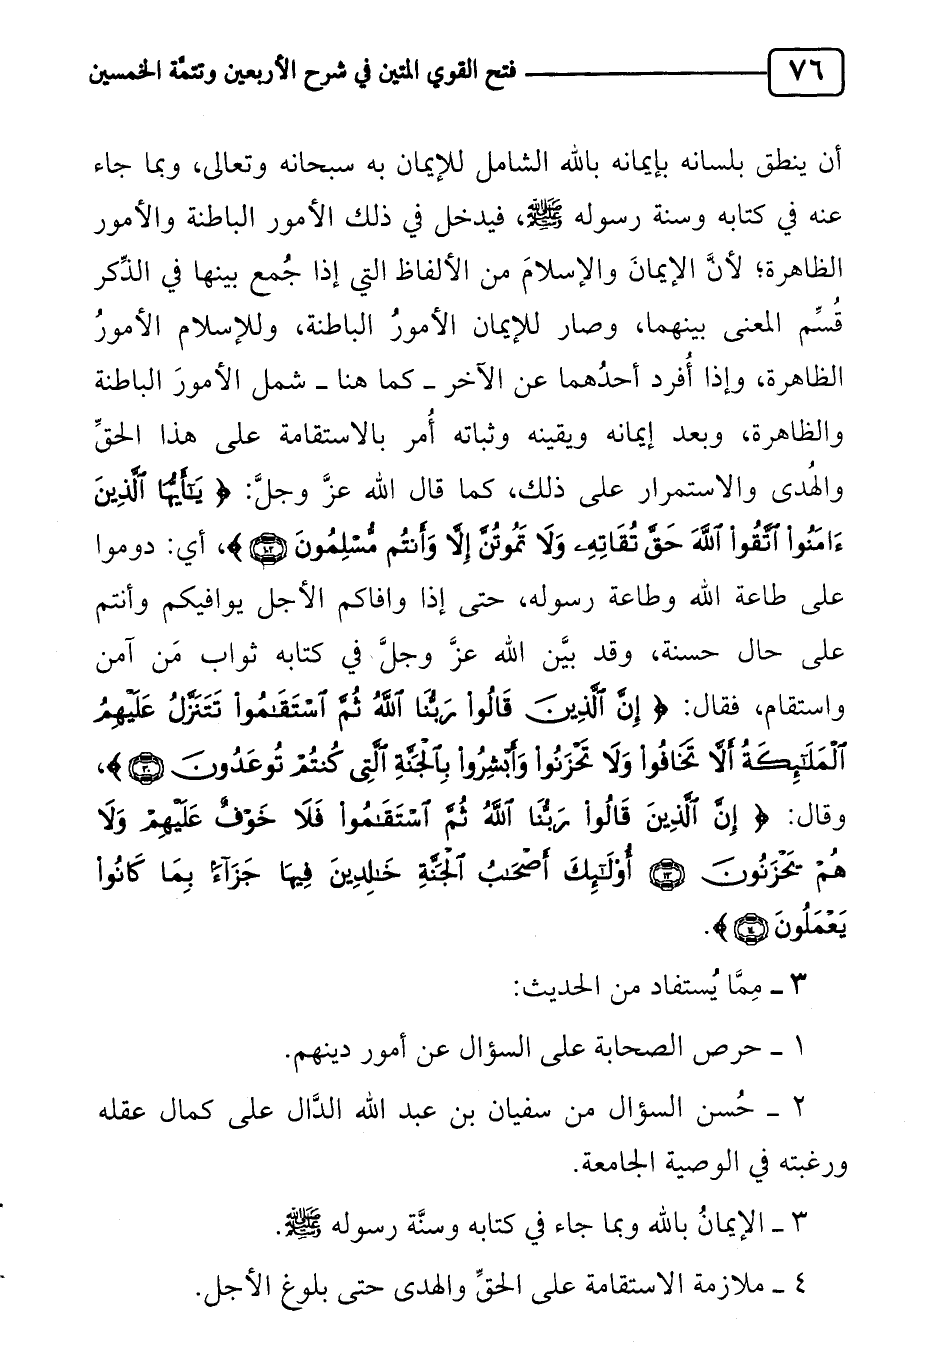 ٧٦ فتح القوي المتين في شرح الأربعين وتتمَّة الخمسين
أن ينطق بلسانه بإيمانه بالله الشامل للإيمان به سبحانه وتعالى، وبما جاء
عنه في كتابه وسنة رسوله ﷺ، فيدخل في ذلك الأمور الباطنة والأمور
الظاهرة؛ لأنَّ الإيمانَ والإسلامَ من الألفاظ التي إذا جُمع بينها في الذِّكر
قُسِّم المعنى بينهما، وصار للإيمان الأمورُ الباطنة، وللإسلام الأمورُ
الظاهرة، وإذا أُفرد أحدُهما عن الآخر ـ كما هنا ـ شمل الأمورَ الباطنة
والظاهرة، وبعد إيمانه ويقينه وثباته أُمر بالاستقامة على هذا الحقِّ
والهُدى والاستمرار على ذلك، كما قال الله عزَّ وجلَّ: ﴿ يَـٰٓأَيُّهَا ٱلَّذِينَ
ءَامَنُوا۟ ٱتَّقُوا۟ ٱللَّهَ حَقَّ تُقَاتِهِۦ وَلَا تَمُوتُنَّ إِلَّا وَأَنتُم مُّسْلِمُونَ ١٠٢ ﴾، أي: دوموا
على طاعة الله وطاعة رسوله، حتى إذا وافاكم الأجل يوافيكم وأنتم
على حال حسنة، وقد بيَّن الله عزَّ وجلَّ في كتابه ثواب مَن آمن
واستقام، فقال: ﴿ إِنَّ ٱلَّذِينَ قَالُوا۟ رَبُّنَا ٱللَّهُ ثُمَّ ٱسْتَقَـٰمُوا۟ تَتَنَزَّلُ عَلَيْهِمُ
ٱلْمَلَـٰٓئِكَةُ أَلَّا تَخَافُوا۟ وَلَا تَحْزَنُوا۟ وَأَبْشِرُوا۟ بِٱلْجَنَّةِ ٱلَّتِى كُنتُمْ تُوعَدُونَ ٣٠ ﴾،
وقال: ﴿ إِنَّ ٱلَّذِينَ قَالُوا۟ رَبُّنَا ٱللَّهُ ثُمَّ ٱسْتَقَـٰمُوا۟ فَلَا خَوْفٌ عَلَيْهِمْ وَلَا
هُمْ يَحْزَنُونَ ١٣ أُو۟لَـٰٓئِكَ أَصْحَـٰبُ ٱلْجَنَّةِ خَـٰلِدِينَ فِيهَا جَزَآءًۢ بِمَا كَانُوا۟
يَعْمَلُونَ ١٤ ﴾.
٣ ـ مِمَّا يُستفاد من الحديث:
١ ـ حرص الصحابة على السؤال عن أمور دينهم.
٢ ـ حُسن السؤال من سفيان بن عبد الله الدَّال على كمال عقله
ورغبته في الوصية الجامعة.
٣ ـ الإيمانُ بالله وبما جاء في كتابه وسنَّة رسوله ﷺ.
٤ ـ ملازمة الاستقامة على الحقِّ والهدى حتى بلوغ الأجل.